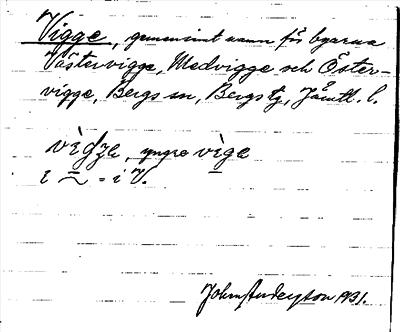 Vigge, gemensamt namn för byarna
Västervigge, Medvigge och Öster-
vigge, Bergs sn, Bergs tg, Jämtl. l.
vèʒe, yngre vège
i ~ = i V.
John Anderzson 1931.